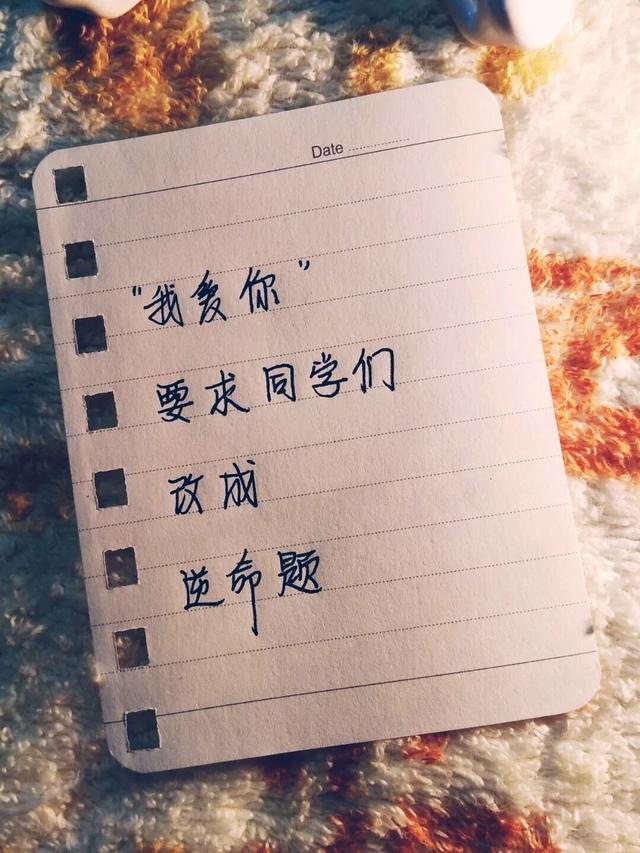 Date
"我爱你"
要求同学们
改成
逆命题